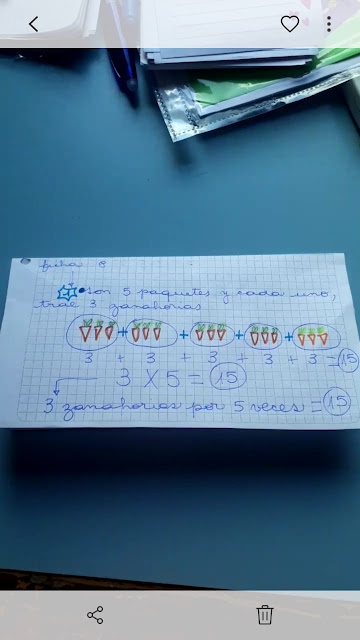 ficha 8
• Son 5 paquetes y cada uno,
trae 3 zanahorias
+ + + +
3 + 3 + 3 + 3 + 3 = 15
3 X 5 = 15
3 zanahorias por 5 veces = 15